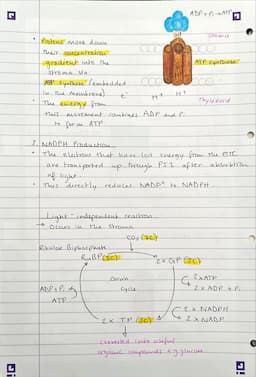 ADP + Pi → ATP
• Protons move down
their concentration
gradient into the
stroma via
ATP Synthase (embedded
in the membrane)
Stroma
ATP Synthase
e⁻ H⁺ H⁺
Thylakoid
• The energy from
this movement combines ADP and Pi
to form ATP
2. NADPH Production
• The electrons that have lost energy from the ETC
are transported up through PSI after absorption
of light.
• This directly reduces NADP⁺ to NADPH
Light-independent reaction
→ Occurs in the Stroma
CO₂ (1C)
Ribulose Biphosphate
RuBP (5C)
2 x GP (3C)
Calvin
Cycle
ADP + Pi
ATP
2 x ATP
2 x ADP + Pi
2 x NADPH
2 x NADP
2 x TP (3C)
converted into useful
organic compounds e.g. glucose